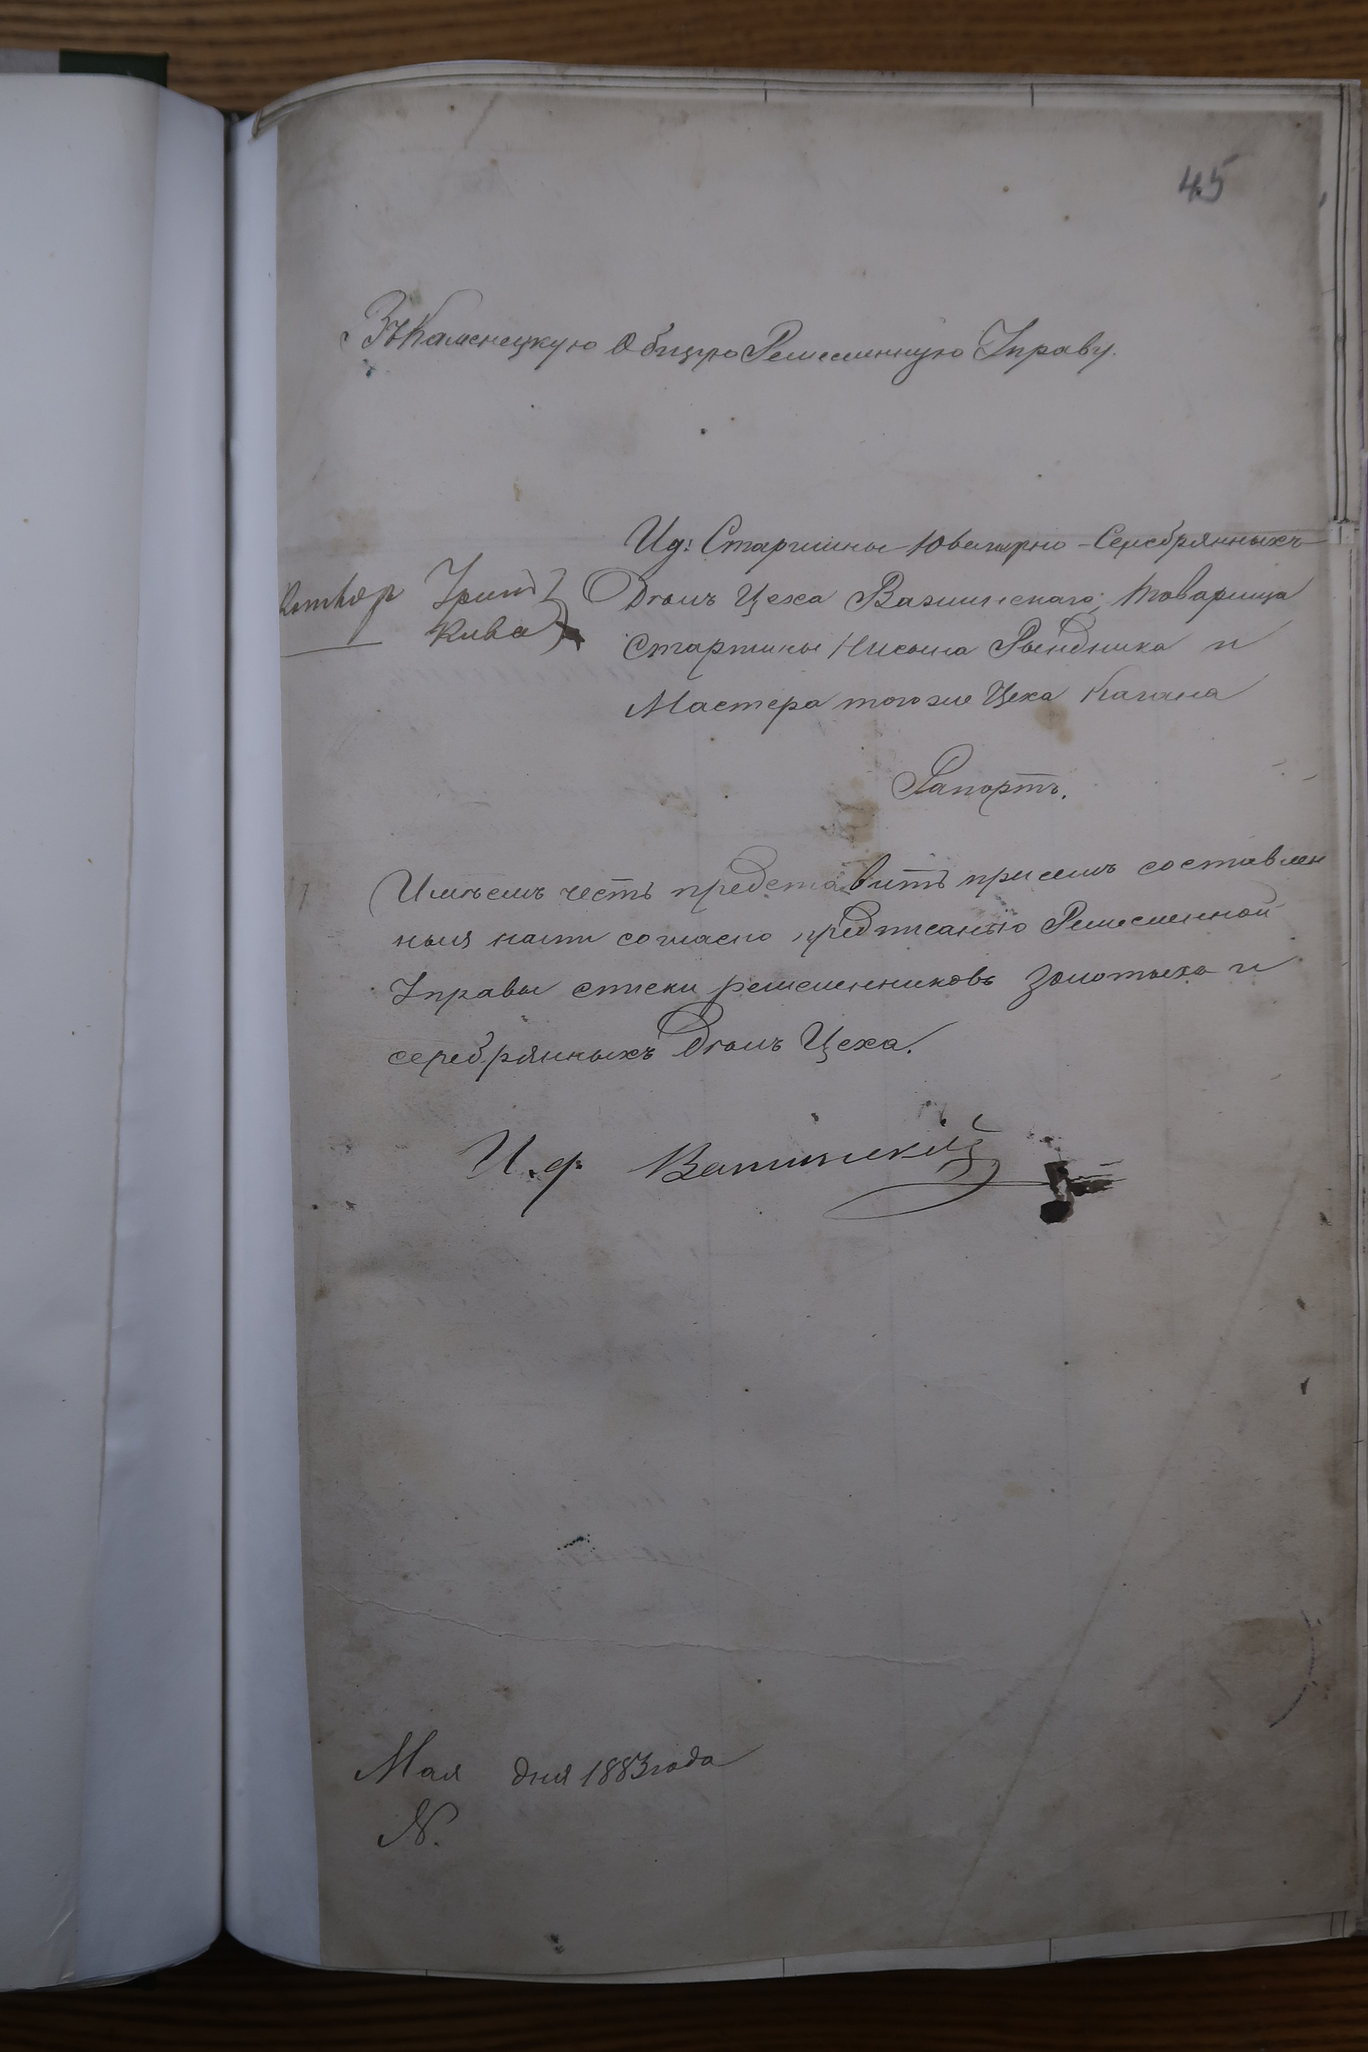 45
Въ Каменецкую Общую Ремесленную Управу.
И д: Старшины Ювелирно-Серебрянныхъ
Дѣлъ Цеха Вазминскаго, Товарища
Старшины Нисына Рындника и
Мастера того же Цеха Кагана
Рапортъ.
Имѣемъ честь представить при семъ составлен
ныя нами согласно предписанію Ремесленной
Управы списки ремесленниковъ золотыхъ и
серебряныхъ Дѣлъ Цеха.
И. д.
Мая дня 1883 года
№.